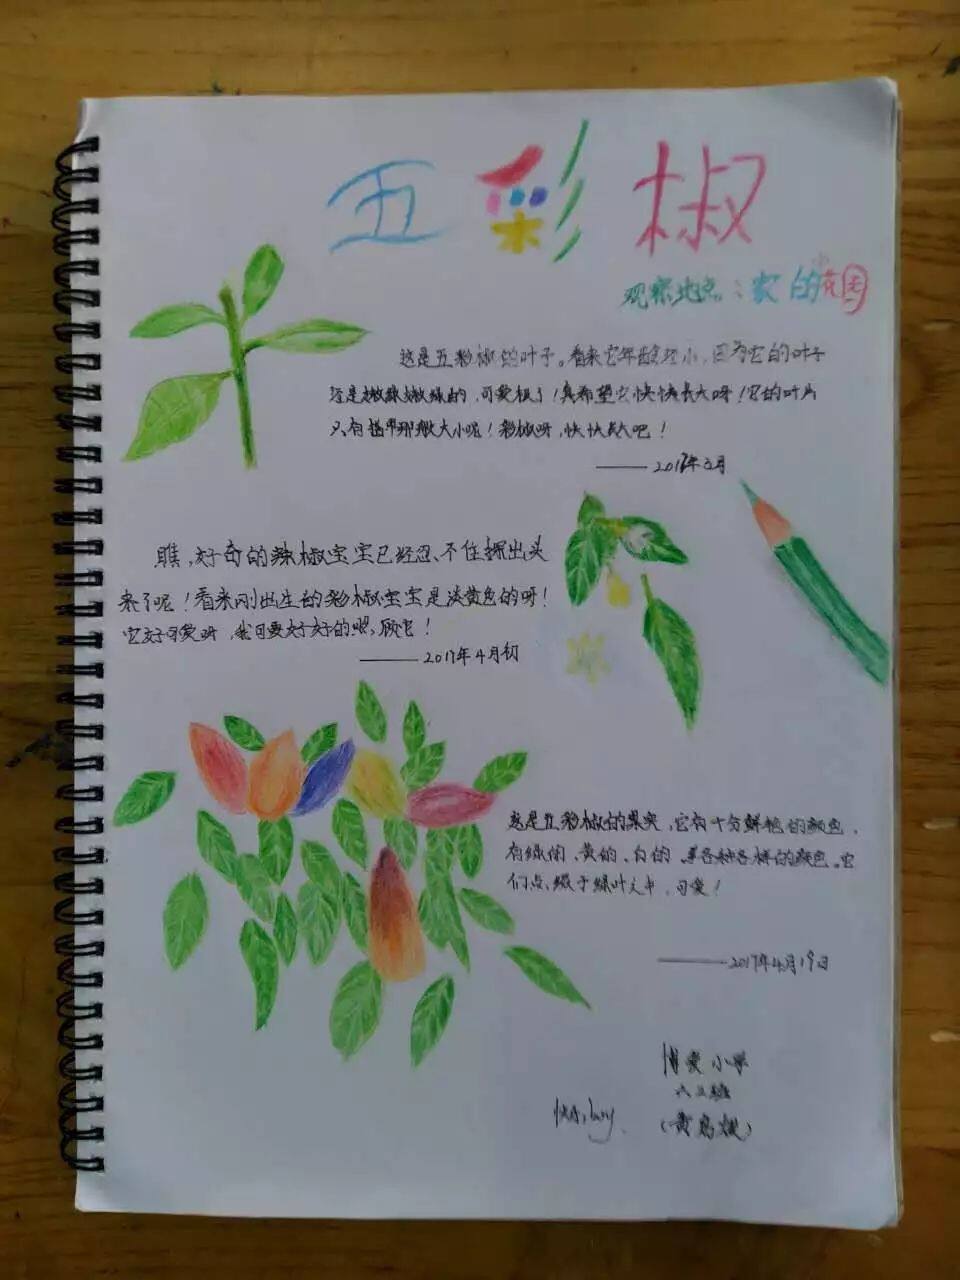 五彩椒
观察地点：家的小花园
这是五彩椒的叶子。看来它年龄还小，因为它的叶子
还是嫩绿嫩绿的，可爱极了！真希望它快快长大呀！它的叶片
只有指甲那般大小呢！彩椒呀，快快长大吧！
——2017年3月
瞧，好奇的辣椒宝宝已经忍不住探出头
来了呢！看来刚出生的彩椒宝宝是淡黄色的呀！
它好可爱呀，我可要好好的照顾它！
——2017年4月初
这是五彩椒的果实，它有十分鲜艳的颜色，
有绿的、黄的、白的等各种各样的颜色。它
们点缀于绿叶之中，可爱！
——2017年4月19日
博爱小学
班